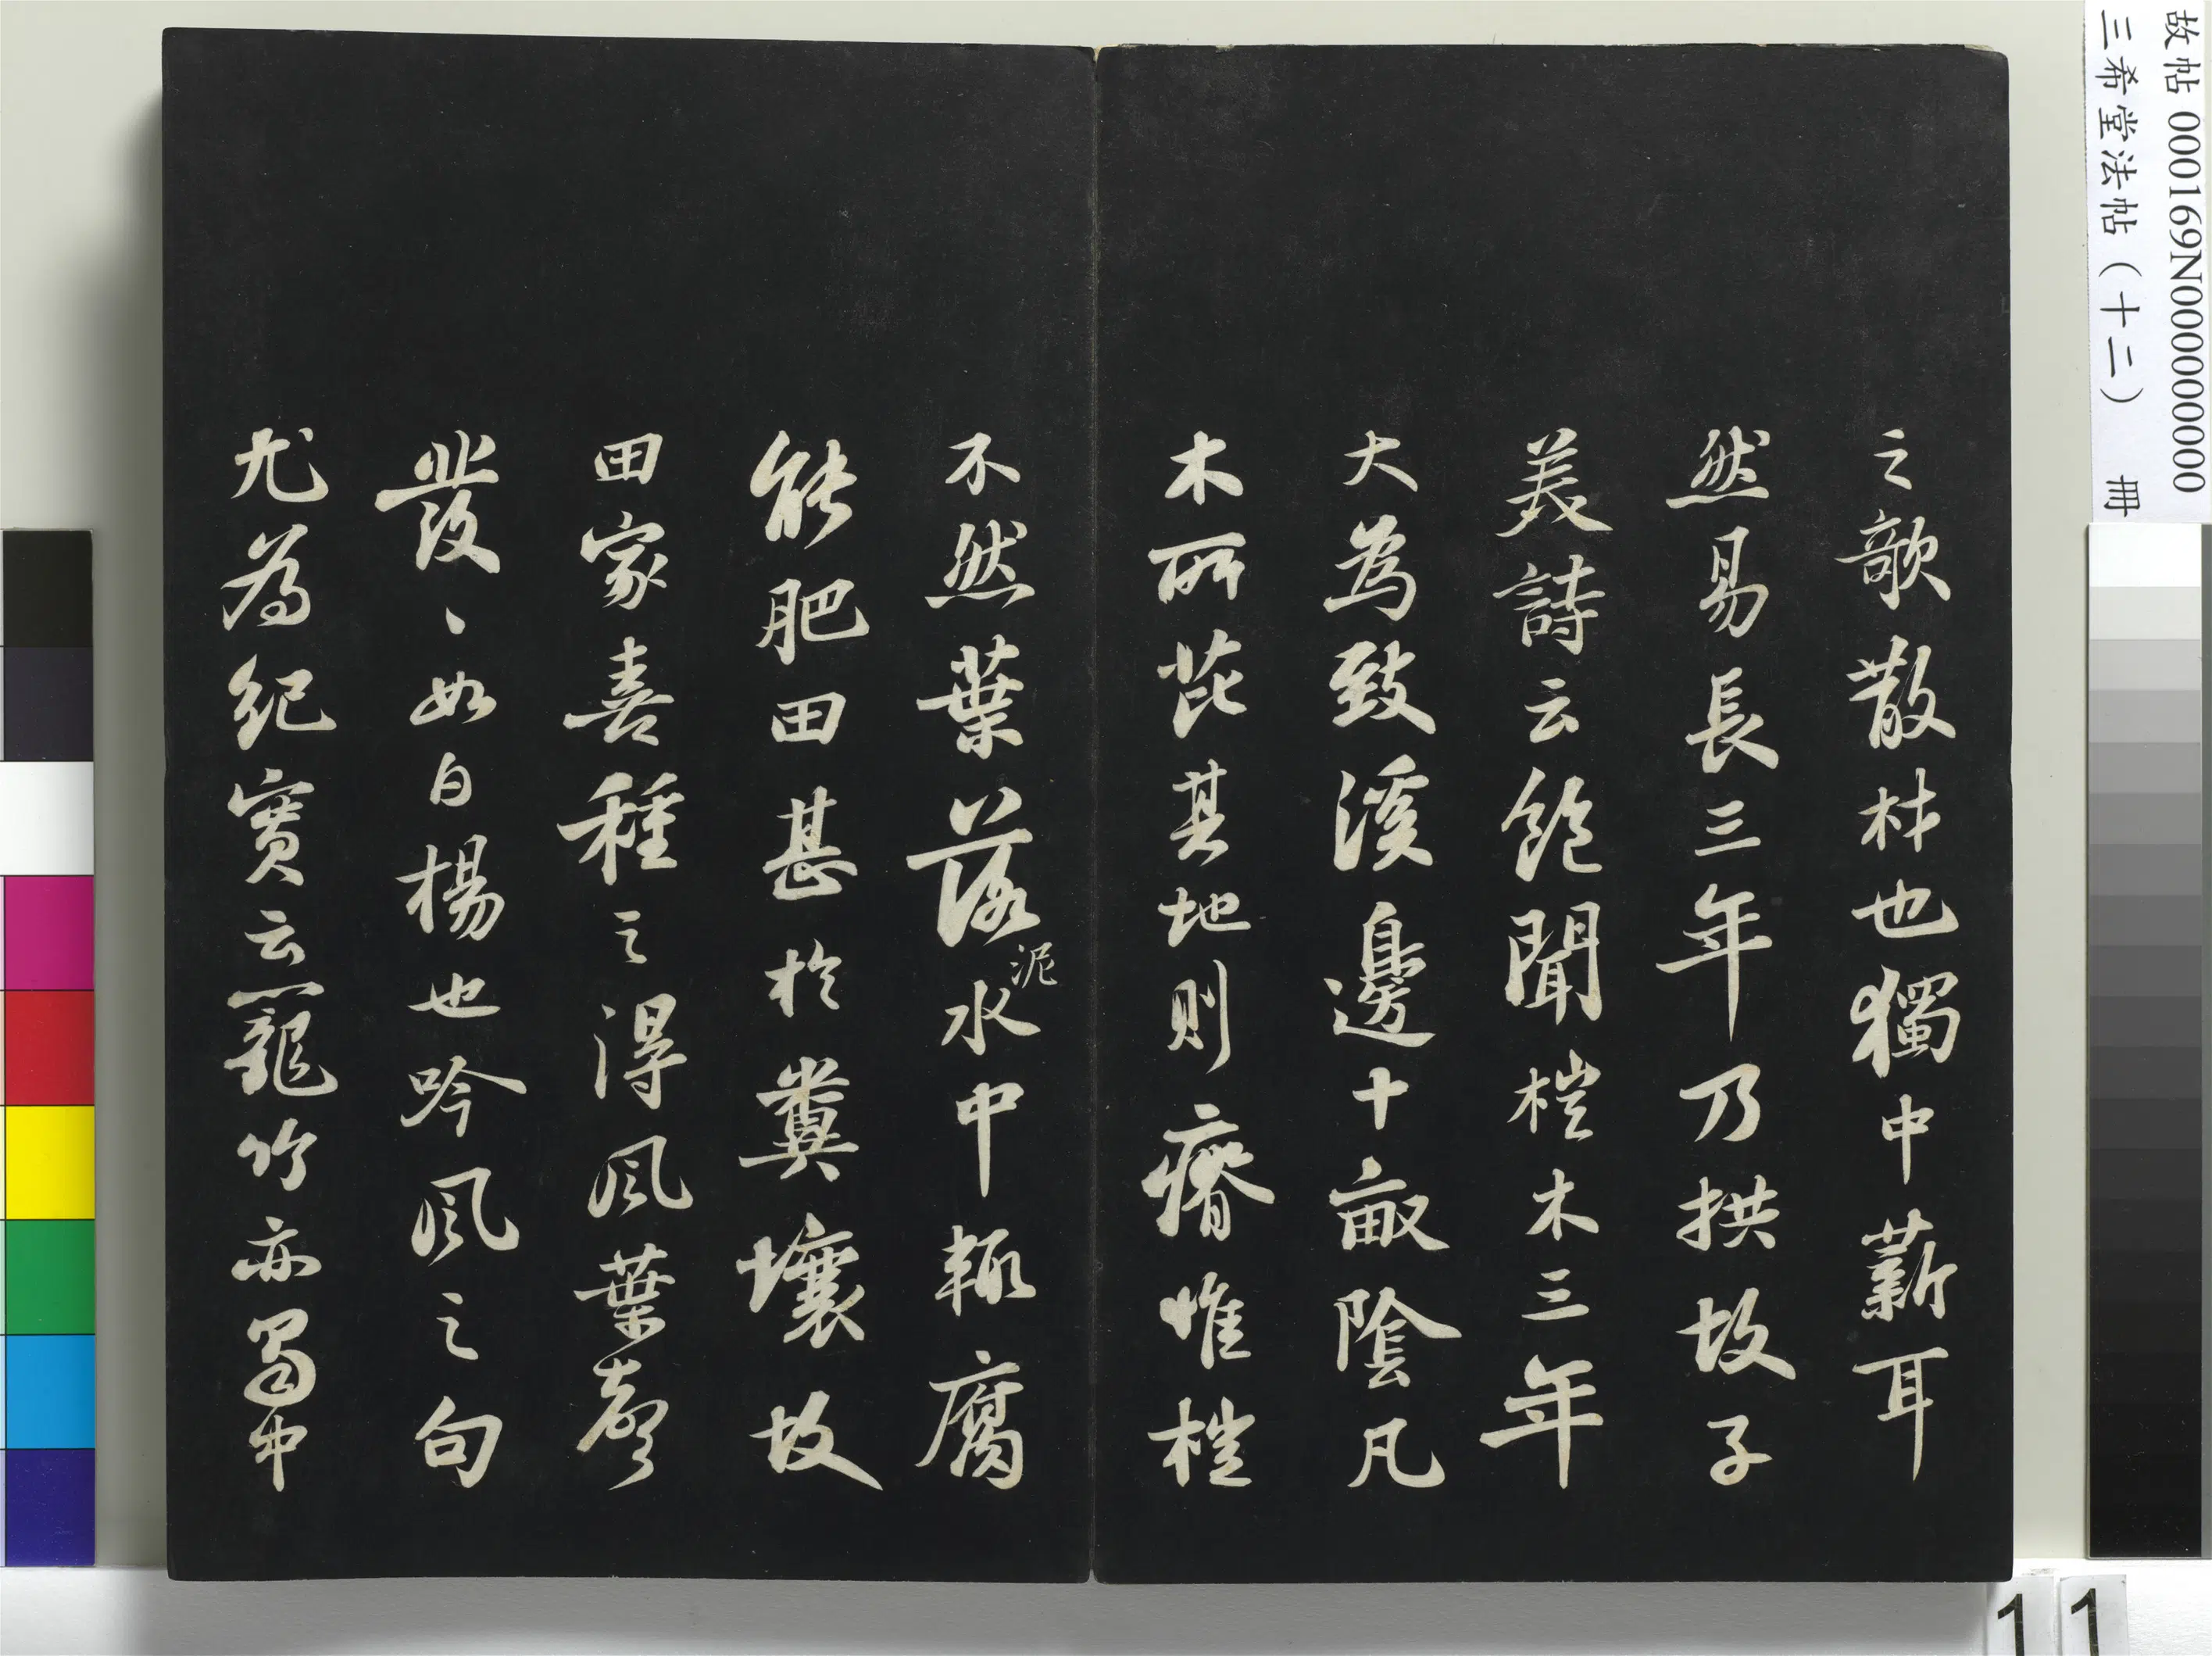 故帖 000169N000000000
三希堂法帖（十二） 冊
之歌散材也獨中薪耳
然易長三年乃拱故子
美詩云飽聞榿木三年
大為致溪邊十畝陰凡
木所芘其地則瘠惟榿
不然葉落泥水中輒腐
能肥田甚於糞壤故
田家喜種之得風葉聲
發、如白楊也吟風之句
尤為紀實云籠竹亦蜀中
11